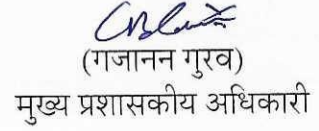 (गजानन गुरव)
मुख्य प्रशासकीय अधिकारी